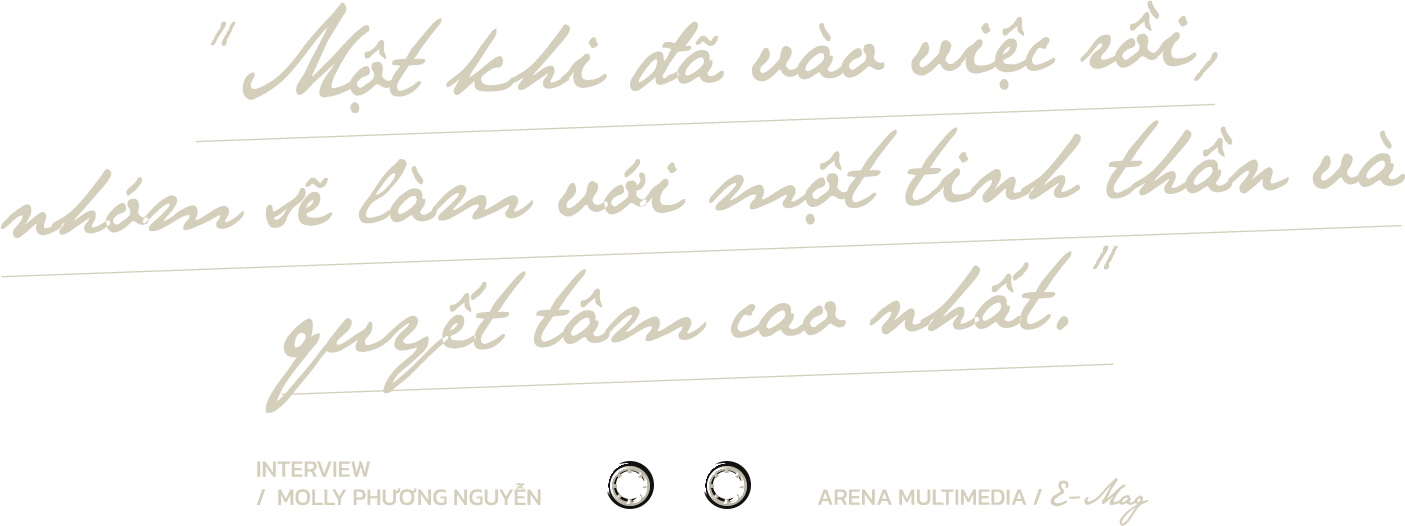 "Một khi đã vào việc rồi,
nhóm sẽ làm với một tinh thần và
quyết tâm cao nhất."
INTERVIEW
/ MOLLY PHƯƠNG NGUYỄN
ARENA MULTIMEDIA / E-Mag